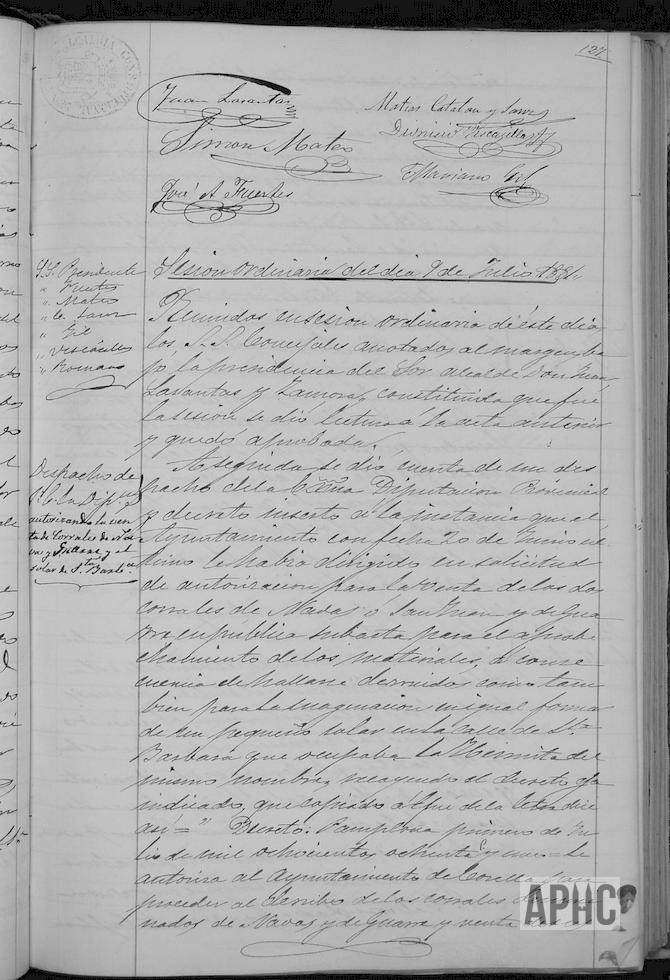 127
Juan Lavantas
Matias Catalan y Sanz
Simon Mateo
Dionisio Viscasillas
José A. Fuertes
Mariano Gil
S.S. Presidente
" Fuertes
" Mateo
" C. Sanz
" Gil
" Viscasillas
" Romano
Sesion ordinaria del dia 9 de Julio 1881.
Reunidos en sesion ordinaria de este dia
los S.S. Concejales anotados al margen ba-
jo la presidencia del Sor. Alcalde Don Juan
Lavantas y Zamora, constituida que fué
la sesion se dió lectura á la acta anterior
y quedó aprobada.
Despacho de
la Dip.
autorizando la ven-
ta de Corrales de Na-
vas y
solar de Sta. Barb.a
A seguida se dió cuenta de un des-
pacho de la Excma Diputacion Provincial
y decreto inserto á la instancia que el
Ayuntamiento con fecha 20 de Junio úl-
timo le habia dirigido en solicitud
de autorizacion para la venta de los dos
corrales de Navas ó San Juan y de Gua-
rra en pública subasta para el aprobe-
chamiento de los materiales, á conse-
cuencia de hallarse derruidos como tam-
bien para la enagenacion en igual forma
de un pequeño solar en la calle de Sta.
Barbara que ocupaba la Hermita del
mismo nombre, recayendo el decreto ya
indicado, que copiado á la letra dice
asi = " Decreto. Pamplona primero de Ju-
lio de mil ochocientos ochenta y uno = Se
autoriza al Ayuntamiento de Corella para
proceder al derribo de los corrales
nados de Navas y de Guarra y venta
APHC